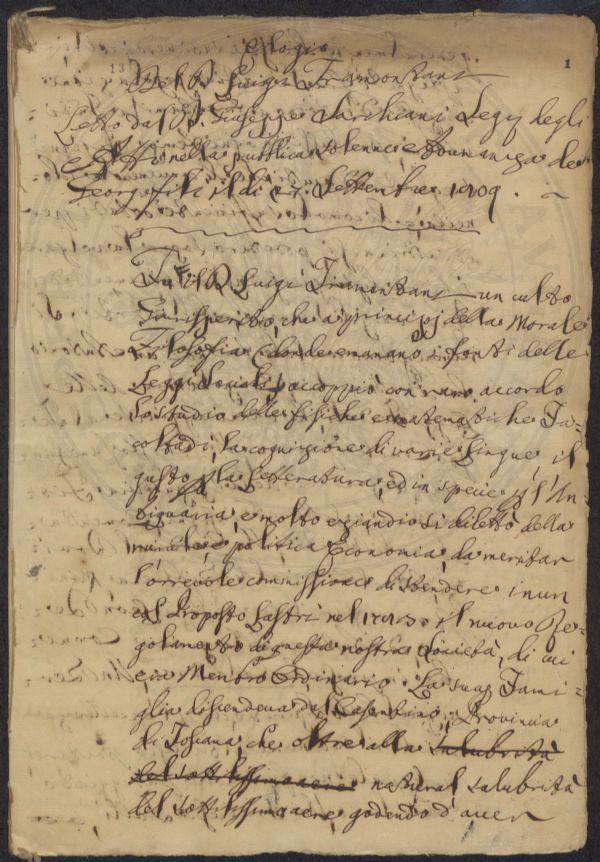 Elogio
Del D. Luigi Tramontani
Letto dal D. Giuseppe Sarchiani Legg. degli
nella pubblica solenne Adunanza de
Georgofili il dì 27. Settembre 1809.
1
13
Fu il D. Luigi Tramontani un culto
Giurisperito, che a' principj della Morale
Filosofia (donde emanano i fonti delle
Leggi Sociali) accoppiò con raro accordo
lo studio delle fisiche e matematiche Fa-
coltadi, la cognizione di varie Lingue, il
gusto p la Letteratura, ed in specie p l'An-
tiquaria, e molto eziandio si dilettò della
politica Economia, da meritar
l'orrevole commissione di stendere in un
col Proposto Lastri nel il nuovo Re-
golamento di questa nostra Società, di cui
era Membro Ordinario. La sua Fami-
glia discendeva dal Casentino, Provincia
di Toscana che oltre alla salubrità
del sottilissimo aere natural salubrità
del sottilissimo aere godendo d'aver